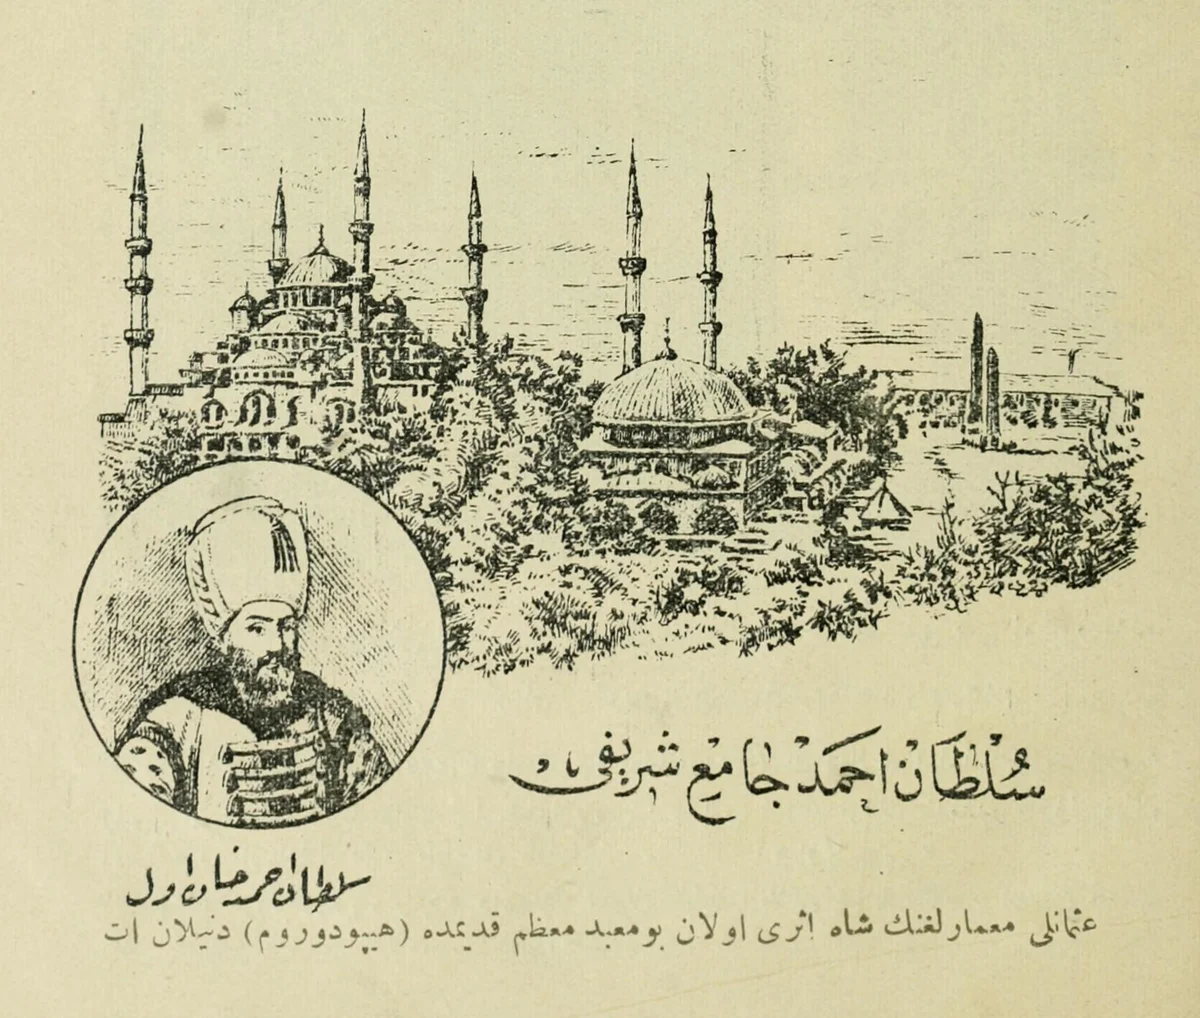 سلطان احمد جامع شریفی
سلطان احمد خان اول
عثمانلی معمارلغنك شاه اثری اولان بومعبد معظم قدیمده (هیپودوروم) دنیلان ات